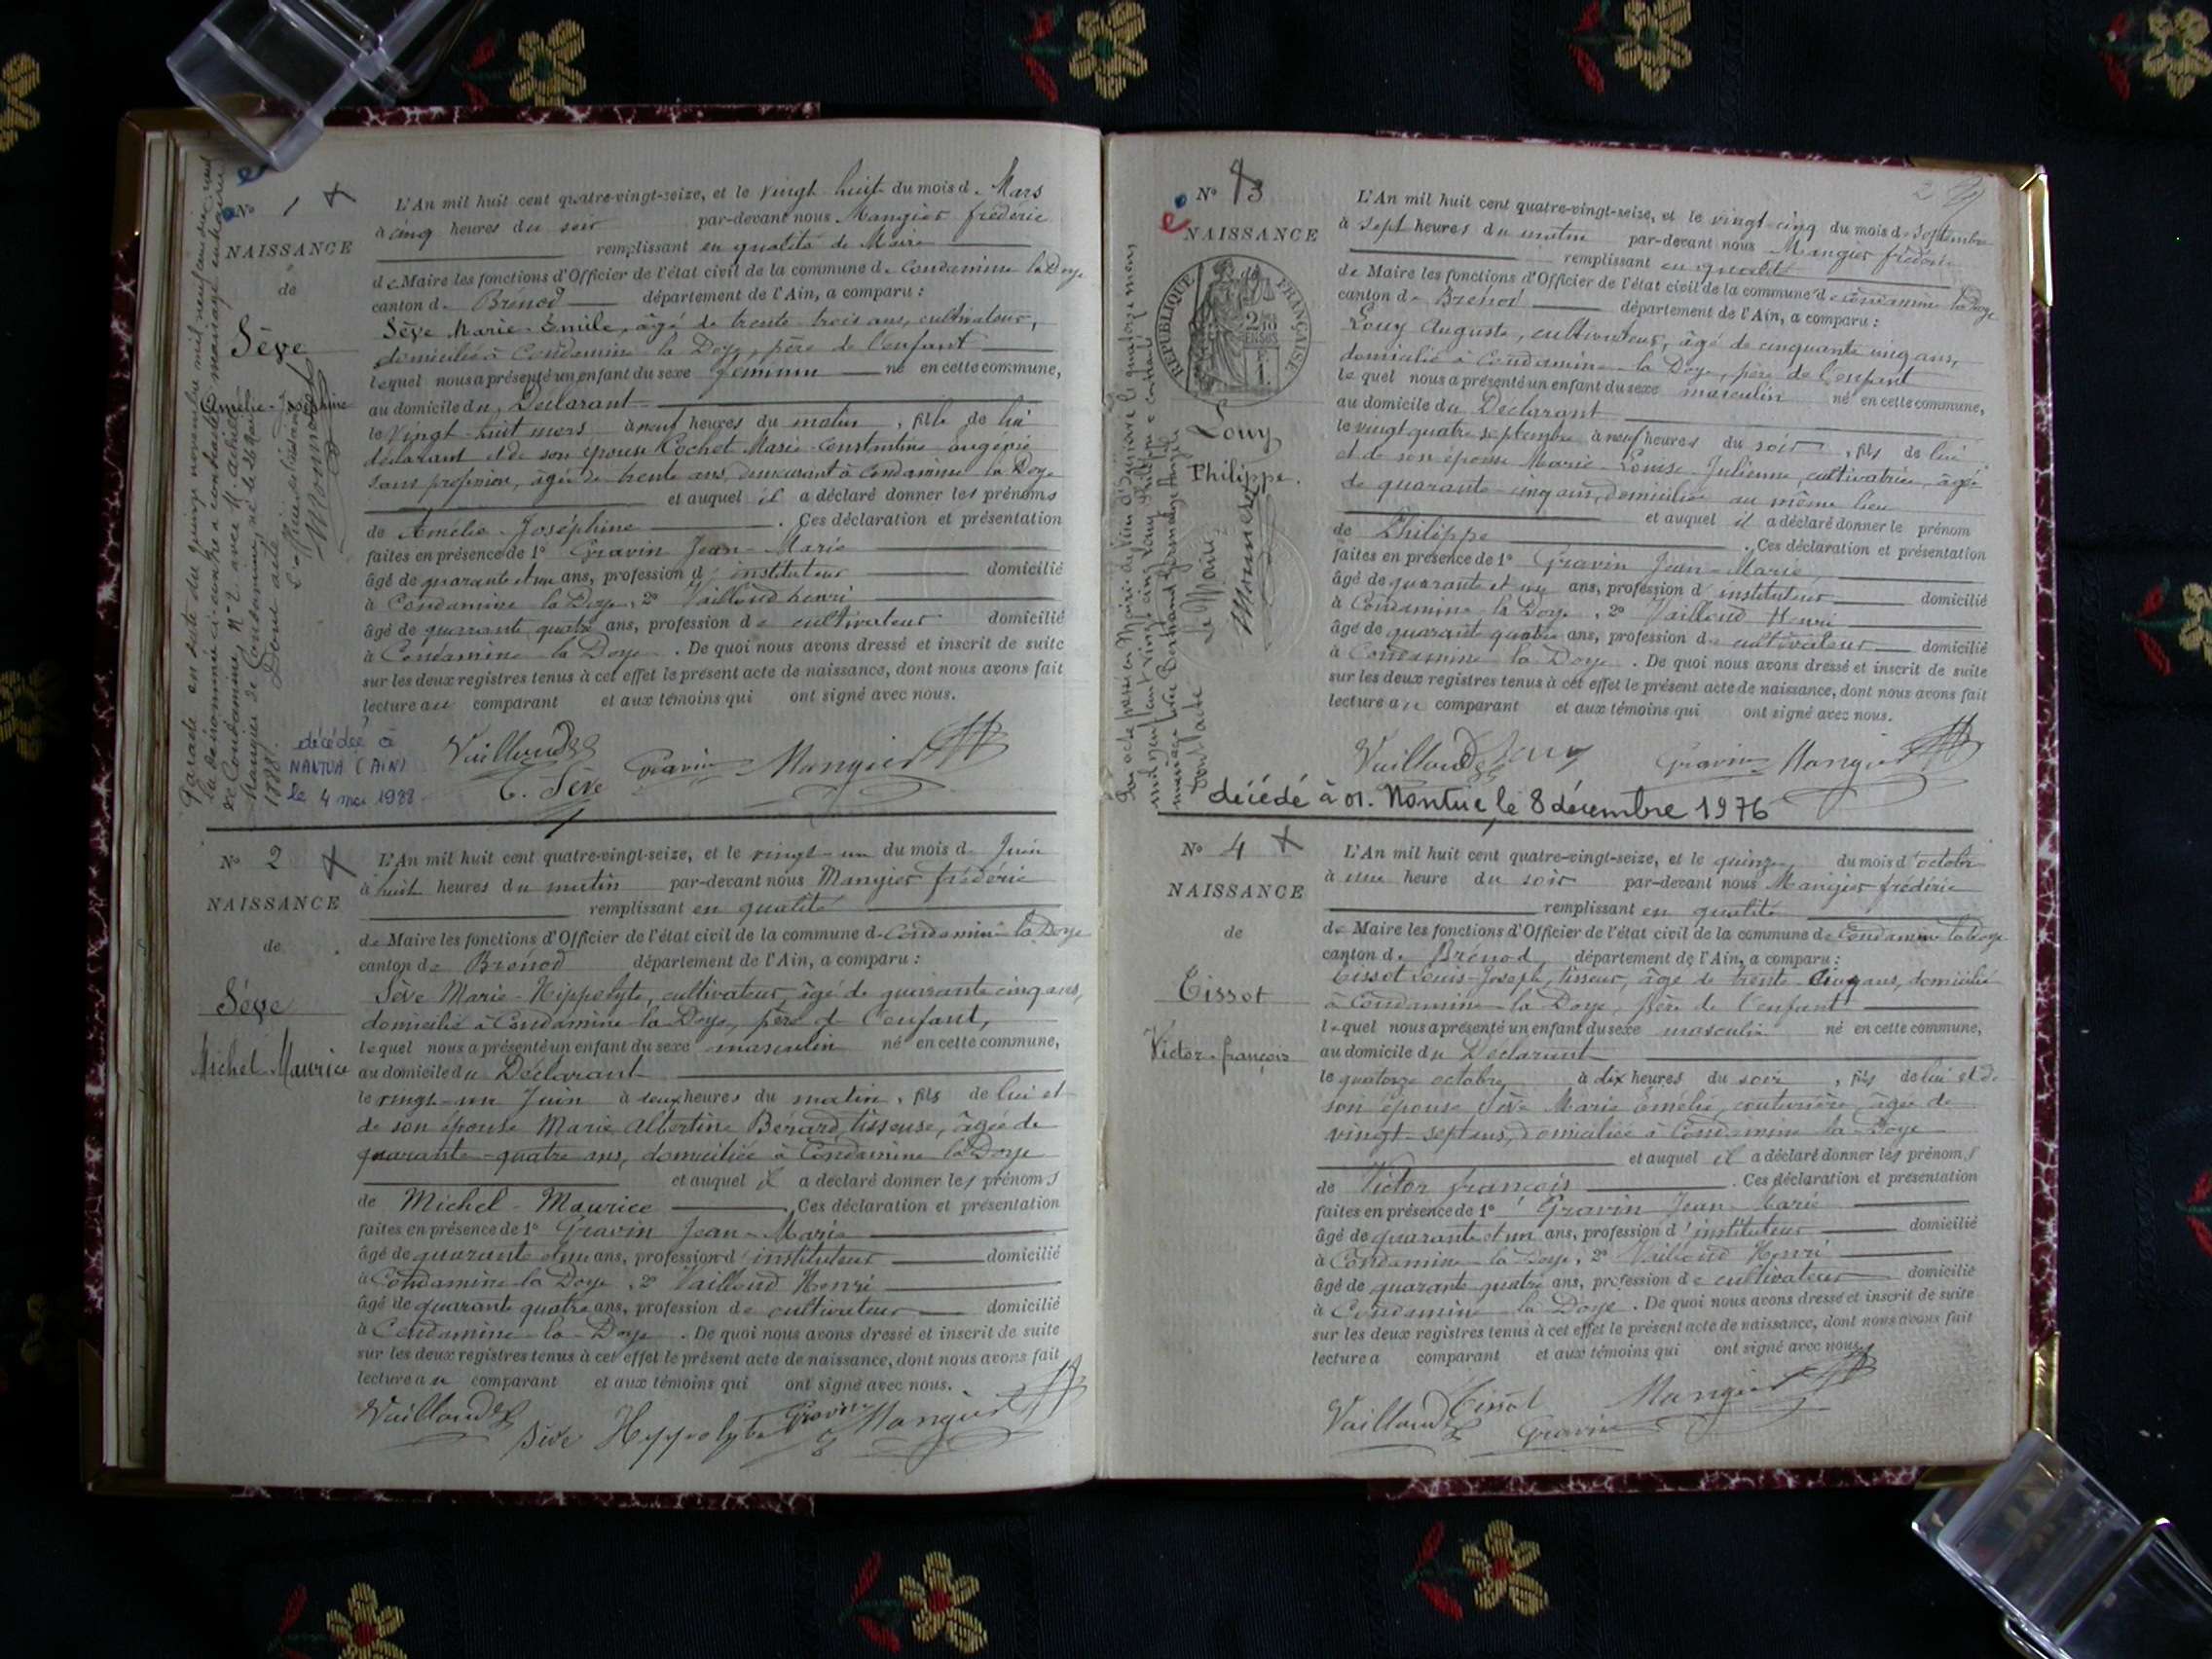 N° 1
NAISSANCE
de
Sève
Amélie-Joséphine
décédée à
NANTUA (AIN)
le 4 mai 1988
L'An mil huit cent quatre-vingt-seize, et le vingt huit du mois de Mars
à cinq heures du soir par-devant nous Mangier frédéric
remplissant en qualité de Maire
de Maire les fonctions d'Officier de l'état civil de la commune de Condamine la Doye
canton de Brénod département de l'Ain, a comparu :
Sève Marie-Emile, âgé de trente trois ans, cultivateur,
domicilié à Condamine la Doye, père de l'enfant
lequel nous a présenté un enfant du sexe féminin né en cette commune,
au domicile du Déclarant
le vingt-huit mars à neuf heures du matin, fille de lui
déclarant et de son épouse Rochet Marie-Constantine
sans profession, âgée de trente ans, demeurant à Condamine la Doye
et auquel il a déclaré donner les prénoms
de Amélie-Joséphine. Ces déclaration et présentation
faites en présence de 1° Gravin Jean-Marie
âgé de quarante et un ans, profession d'instituteur domicilié
à Condamine la Doye, 2° Vailloud henri
âgé de quarante quatre ans, profession de cultivateur domicilié
à Condamine la Doye. De quoi nous avons dressé et inscrit de suite
sur les deux registres tenus à cet effet le présent acte de naissance, dont nous avons fait
lecture au comparant et aux témoins qui ont signé avec nous.
Vailloud
E. Sève Gravin Mangier
N° 2
NAISSANCE
de
Sève
Michel-Maurice
L'An mil huit cent quatre-vingt-seize, et le vingt-un du mois de Juin
à huit heures du matin par-devant nous Mangier frédéric
remplissant en qualité
de Maire les fonctions d'Officier de l'état civil de la commune de Condamine la Doye
canton de Brénod département de l'Ain, a comparu :
Sève Marie-Hippolyte, cultivateur, âgé de quarante cinq ans,
domicilié à Condamine la Doye, père de l'enfant,
lequel nous a présenté un enfant du sexe masculin né en cette commune,
au domicile du Déclarant
le vingt-un Juin à deux heures du matin, fils de lui et
de son épouse Marie Albertine Bérard, tisseuse, âgée de
quarante-quatre ans, domiciliée à Condamine la Doye
et auquel il a déclaré donner les prénoms
de Michel-Maurice. Ces déclaration et présentation
faites en présence de 1° Gravin Jean-Marie
âgé de quarante et un ans, profession d'instituteur domicilié
à Condamine la Doye, 2° Vailloud Henri
âgé de quarante quatre ans, profession de cultivateur domicilié
à Condamine-la-Doye. De quoi nous avons dressé et inscrit de suite
sur les deux registres tenus à cet effet le présent acte de naissance, dont nous avons fait
lecture au comparant et aux témoins qui ont signé avec nous.
Vailloud Sève Hyppolyte Gravin Mangier
N° 3
NAISSANCE
RÉPUBLIQUE FRANÇAISE
Louy
Philippe.
Le Maire
L'An mil huit cent quatre-vingt-seize, et le vingt-cinq du mois de Septembre
à sept heures du matin par-devant nous Mangier frédéric
remplissant en qualité
de Maire les fonctions d'Officier de l'état civil de la commune de Condamine la Doye
canton de Brénod département de l'Ain, a comparu :
Louy Auguste, cultivateur, âgé de cinquante cinq ans,
domicilié à Condamine-la Doye, père de l'enfant
lequel nous a présenté un enfant du sexe masculin né en cette commune,
au domicile du Déclarant
le vingt quatre septembre à neuf heures du soir, fils de lui
et de son épouse Marie-Louise-Julienne, cultivatrice, âgée
de quarante-cinq ans, domiciliée au même lieu
et auquel il a déclaré donner le prénom
de Philippe. Ces déclaration et présentation
faites en présence de 1° Gravin Jean-Marie
âgé de quarante et un ans, profession d'instituteur domicilié
à Condamine la Doye, 2° Vailloud Henri
âgé de quarante quatre ans, profession de cultivateur domicilié
à Condamine la Doye. De quoi nous avons dressé et inscrit de suite
sur les deux registres tenus à cet effet le présent acte de naissance, dont nous avons fait
lecture au comparant et aux témoins qui ont signé avec nous.
Vailloud Louy Gravin Mangier
décédé à Nantua, le 8 décembre 1976
N° 4
NAISSANCE
de
Tissot
Victor-françois
L'An mil huit cent quatre-vingt-seize, et le quinze du mois d'octobre
à une heure du soir par-devant nous Mangier frédéric
remplissant en qualité
de Maire les fonctions d'Officier de l'état civil de la commune de Condamine la Doye
canton de Brénod, département de l'Ain, a comparu :
Tissot Louis-Joseph, tisseur, âgé de trente-cinq ans, domicilié
à Condamine-la Doye, père de l'enfant
lequel nous a présenté un enfant du sexe masculin né en cette commune,
au domicile du Déclarant
le quatorze octobre à dix heures du soir, fils de lui et de
son épouse Sève Marie Emélie, couturière, âgée de
vingt-sept ans, domiciliée à Condamine-la-Doye
et auquel il a déclaré donner les prénoms
de Victor françois. Ces déclaration et présentation
faites en présence de 1° Gravin Jean-Marie
âgé de quarante et un ans, profession d'instituteur domicilié
à Condamine la Doye, 2° Vailloud Henri
âgé de quarante quatre ans, profession de cultivateur domicilié
à Condamine la Doye. De quoi nous avons dressé et inscrit de suite
sur les deux registres tenus à cet effet le présent acte de naissance, dont nous avons fait
lecture a comparant et aux témoins qui ont signé avec nous.
Vailloud Tissot Gravin Mangier